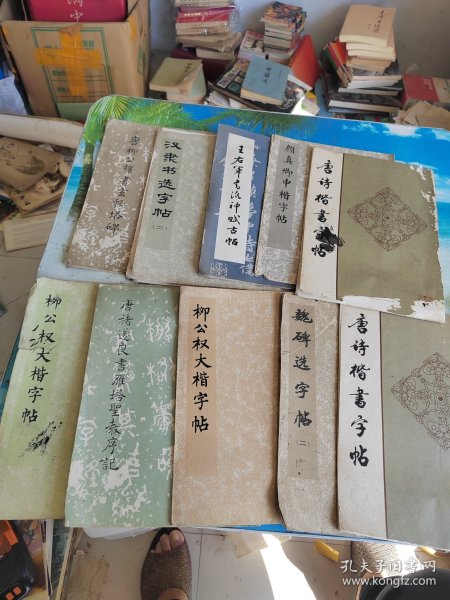 唐柳公權書玄秘塔碑
汉隶书选字帖
(二)
王右军书洛神赋古帖
颜真卿中楷字帖
唐诗楷书字帖
柳公权大楷字帖
唐褚遂良書雁塔聖教序記
柳公权大楷字帖
魏碑选字帖
(二)
唐诗楷书字帖
孔夫子旧书网
www.kongfz.com